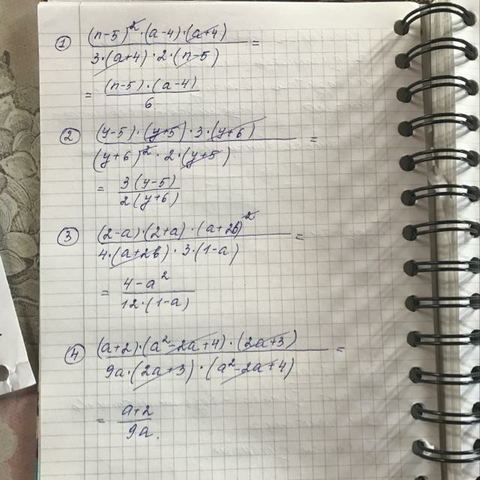 ① (n-5)²·(a-4)·(a+4) / 3·(a+4)·2·(n-5) =
= (n-5)·(a-4) / 6
② (y-5)·(y+5)·3·(y+6) / (y+6)²·2·(y+5) =
= 3(y-5) / 2(y+6)
③ (2-a)·(2+a)·(a+2b)² / 4·(a+2b)·3·(1-a) =
= 4-a² / 12·(1-a)
④ (a+2)·(a²-2a+4)·(2a+3) / 9a·(2a+3)·(a²-2a+4) =
= a+2 / 9a.